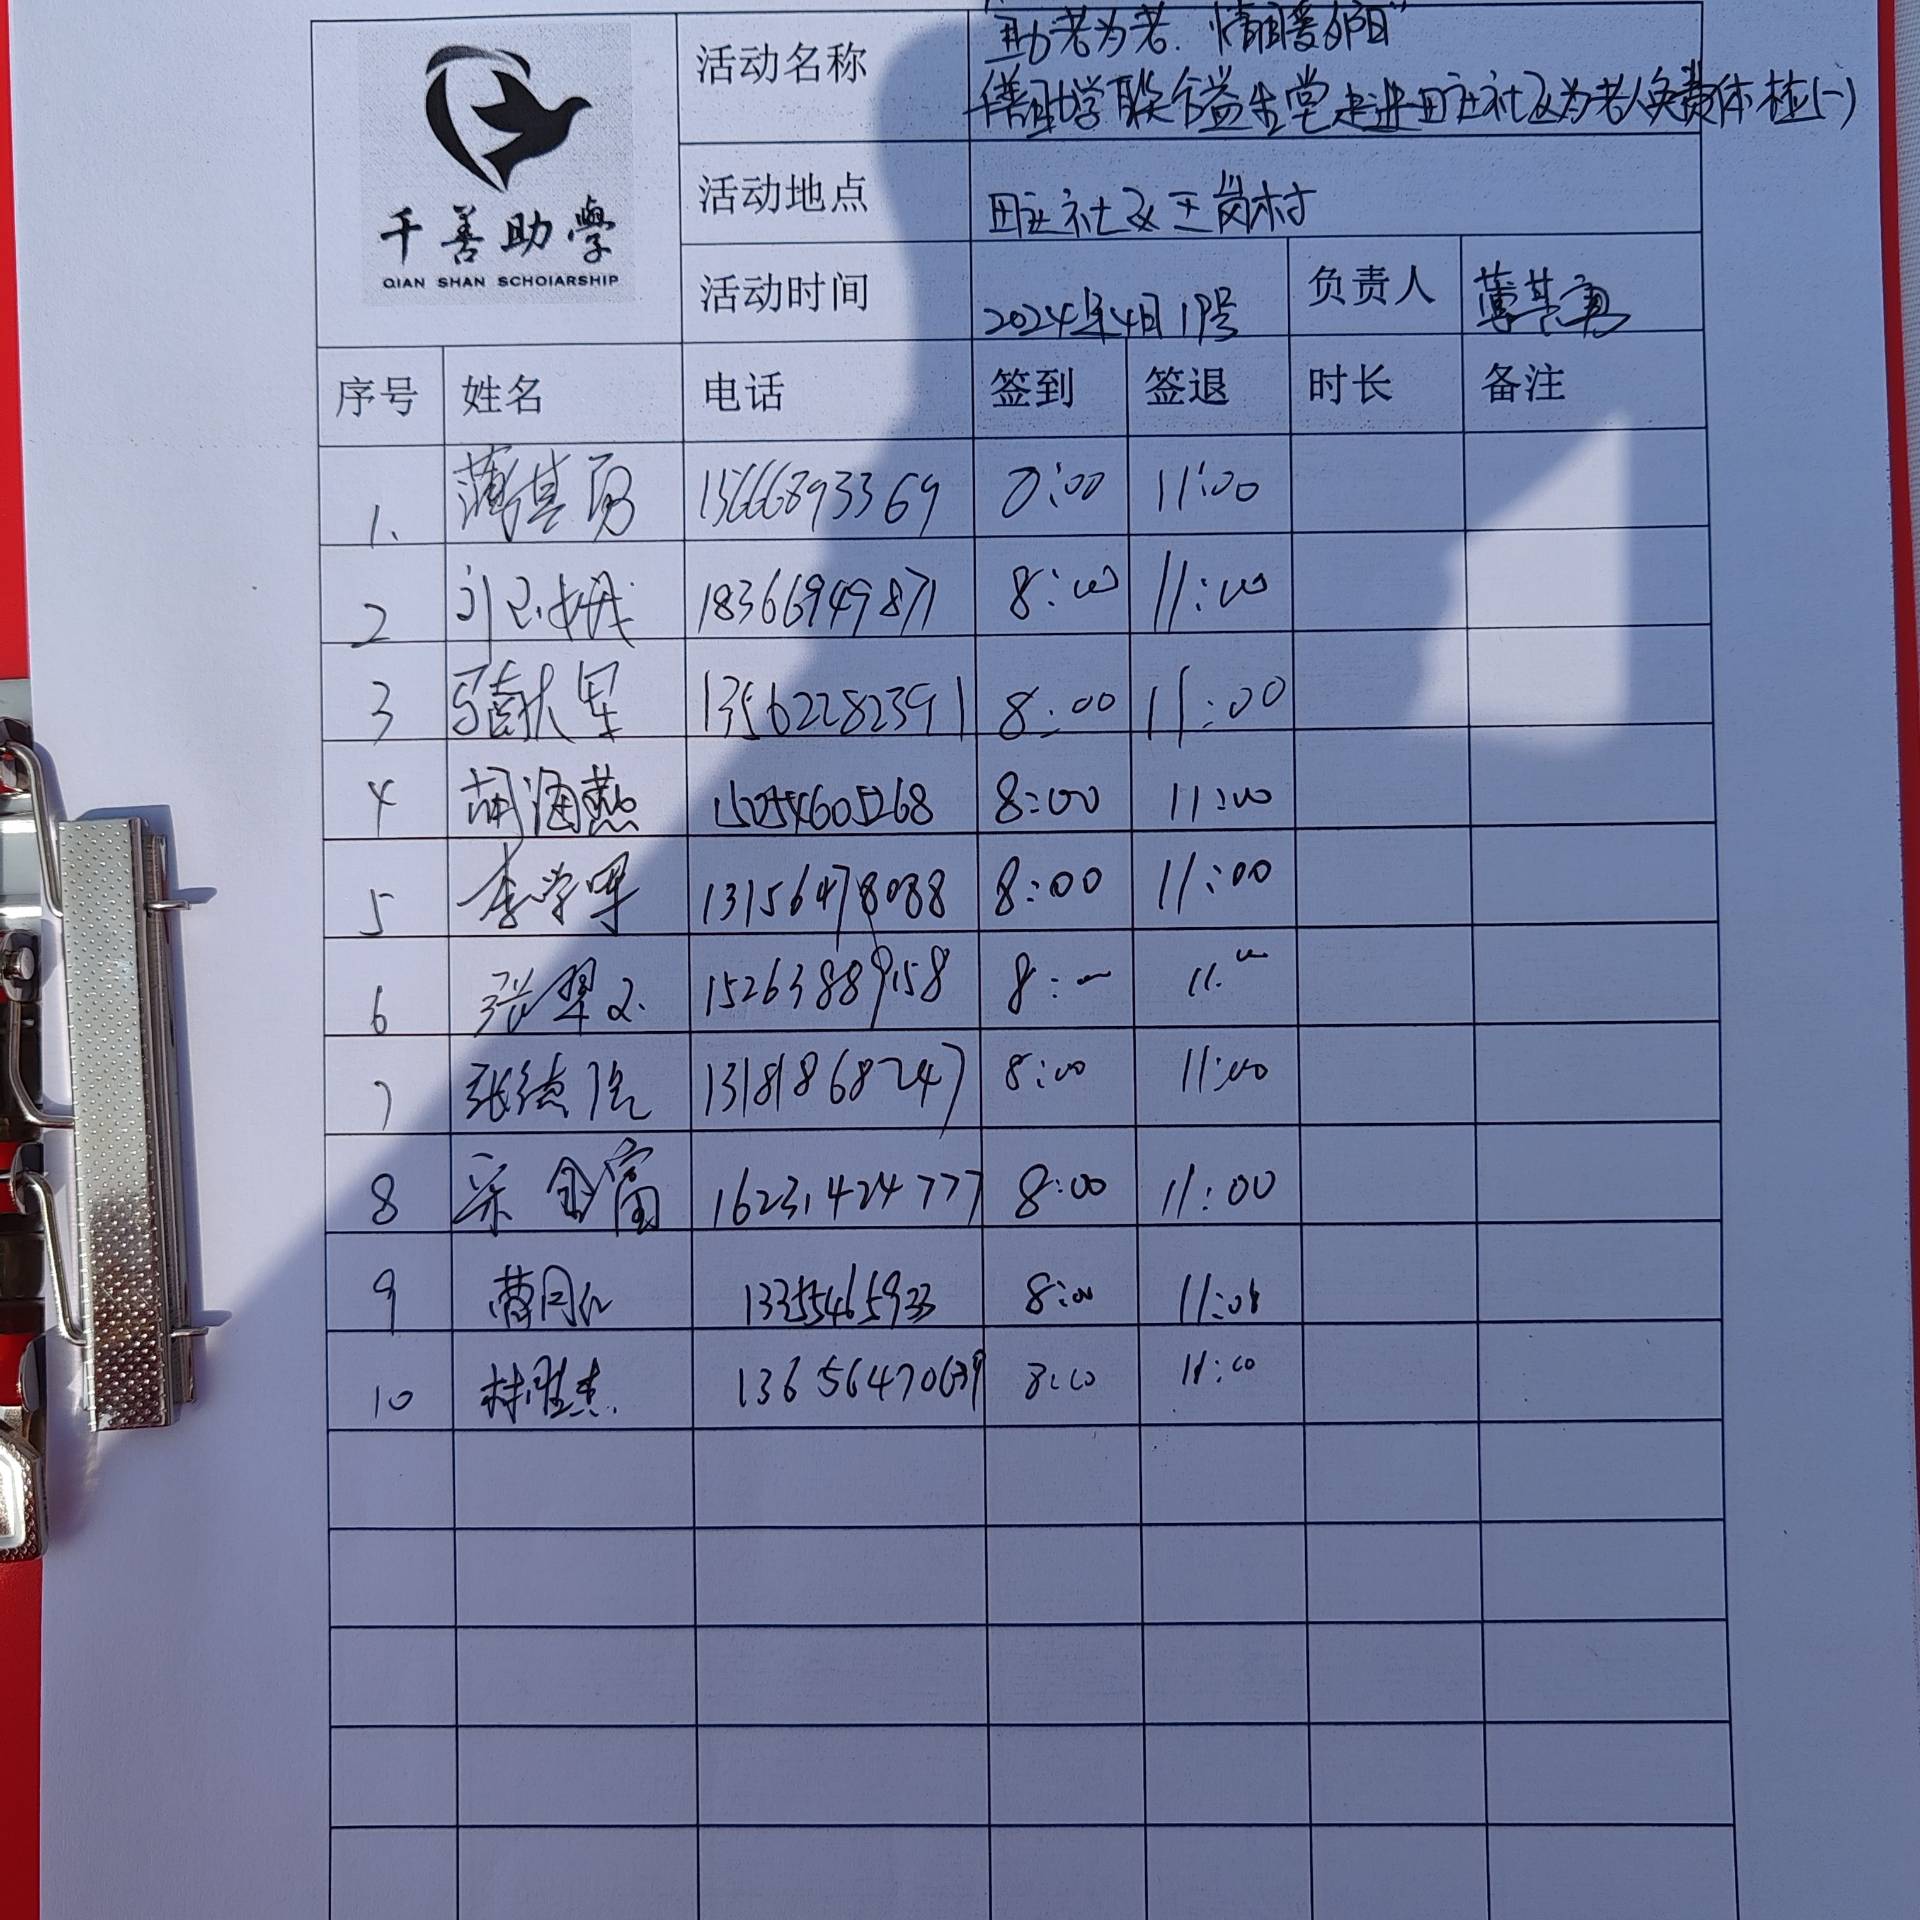 千善助學
QIAN SHAN SCHOIARSHIP
活动名称
助老为老. 情暖夕阳"
千善助学联合益生堂走进田庄社区为老人免费体检(一)
活动地点
田庄社区王岗村
活动时间
2024年4月19号
负责人
薄其勇
序号 姓名 电话 签到 签退 时长 备注
1. 薄其勇 15666893369 8:00 11:00
2 18366949871 8:00 11:00
3 13562282391 8:00 11:00
4 胡海燕 15054605268 8:00 11:00
5 李学军 13156478088 8:00 11:00
6 张翠 15263889158 8: 11:
7 张德 13181868247 8:00 11:00
8 宋金富 16231424777 8:00 11:00
9 曹同仁 13355465933 8:00 11:00
10 林胜杰 13656470639 8:00 11:00